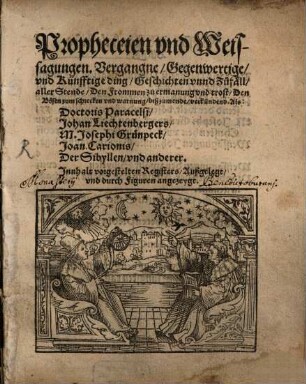 Propheceien vnd Weis-
sagungen. Vergangne/ Gegenwertige/
vnd Künfftige ding/ Geschichten vnnd Zůfäll/
aller Stende/ Den Frommen zů ermanung vnd trost/ Den
Bösen zum schrecken vnd warnung/ biß zum ende/ verkündend. Als
Doctoris Paracelsi/
Johan Liechtenbergers/
M. Josephi Grünpeck/
Joan. Carionis/
Der Sibyllen/ vnd anderer.
Innhalt vorgestelten Registers/ Außgelegt/
vnd durch Figuren angezeygt.